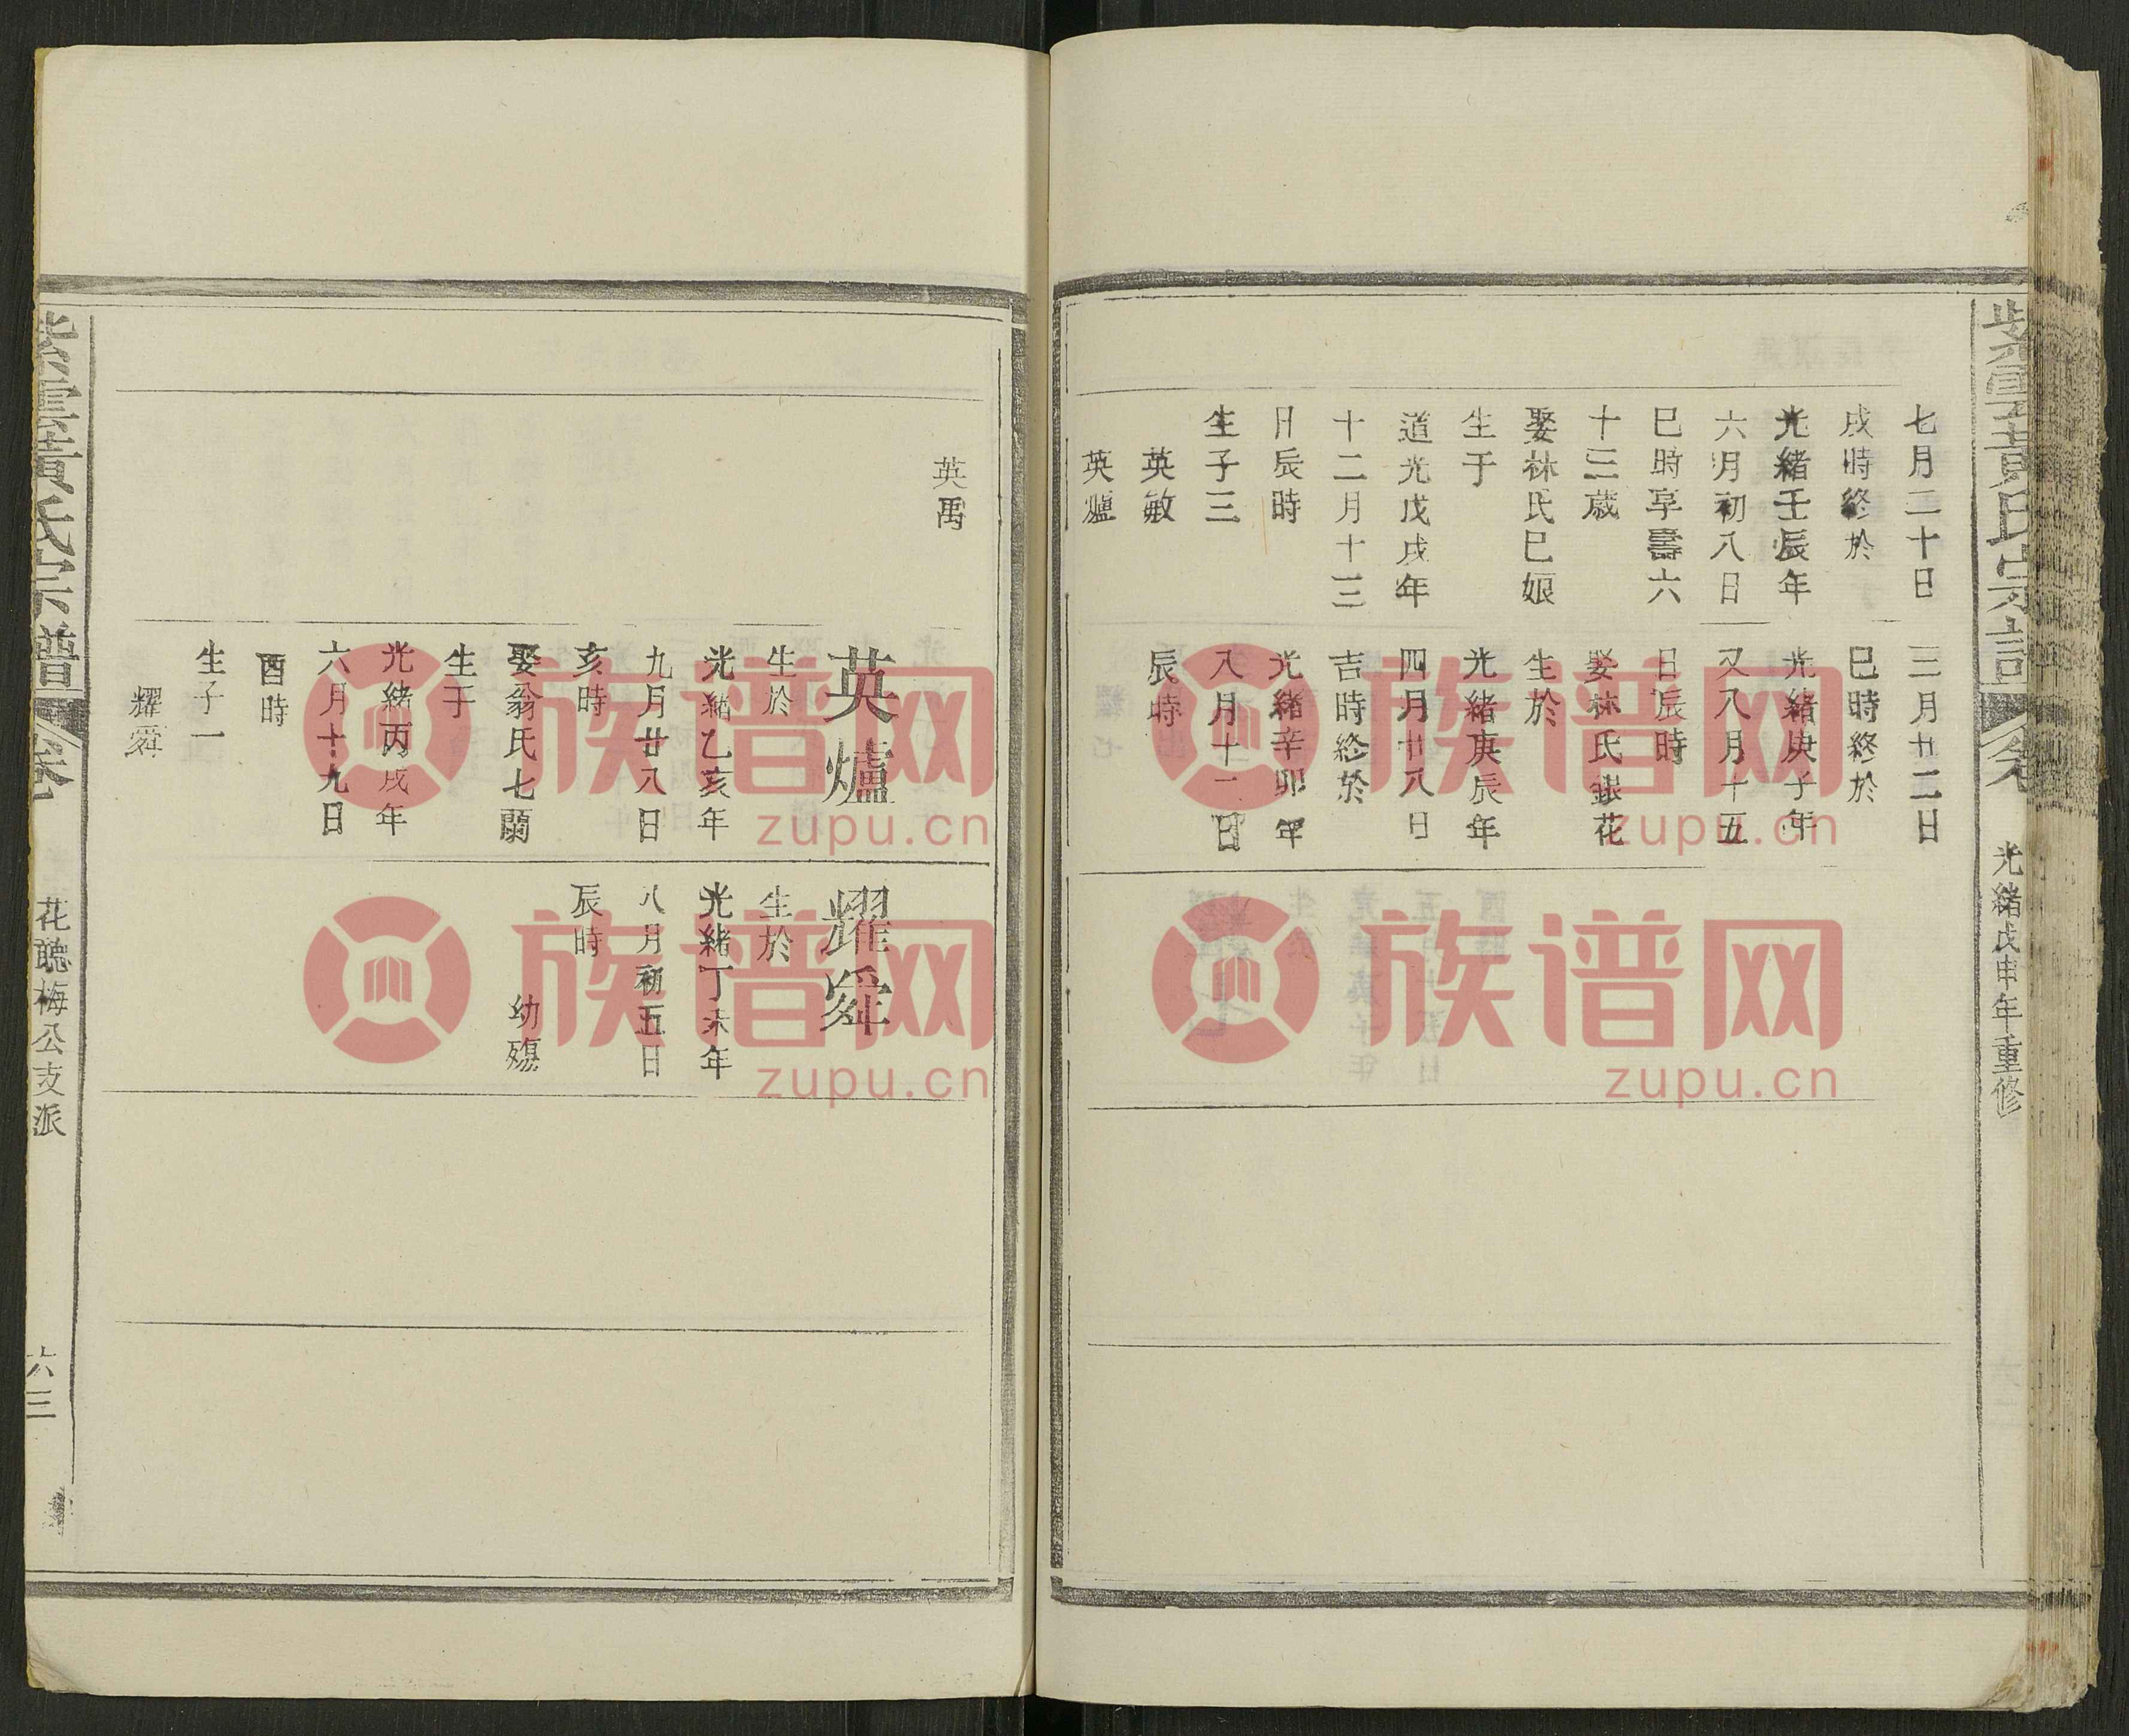 光緒戊申年重修
七月二十日
戌時終於
光緒壬辰年
六月初八日
巳時享壽六
十三歲
娶林氏巳娘
生于
道光戊戌年
十二月十三
日辰時
生子三
英敏
英爐
三月廿二日
巳時終於
光緒庚子年
又八月十五
日辰時
娶林氏銀花
生於
光緒庚辰年
四月廿八日
吉時終於
光緒辛卯年
八月十一日
辰時
英禹
英爐
生於
光緒乙亥年
九月廿八日
亥時
娶翁氏七蘭
生于
光緒丙戌年
六月十九日
酉時
生子一
耀舜
耀舜
生於
光緒丁未年
八月初五日
辰時
幼殤
紫雲黃氏宗譜
卷
花聽梅公支派
六三
族谱网
zupu.cn
族谱网
zupu.cn
族谱网
zupu.cn
族谱网
zupu.cn